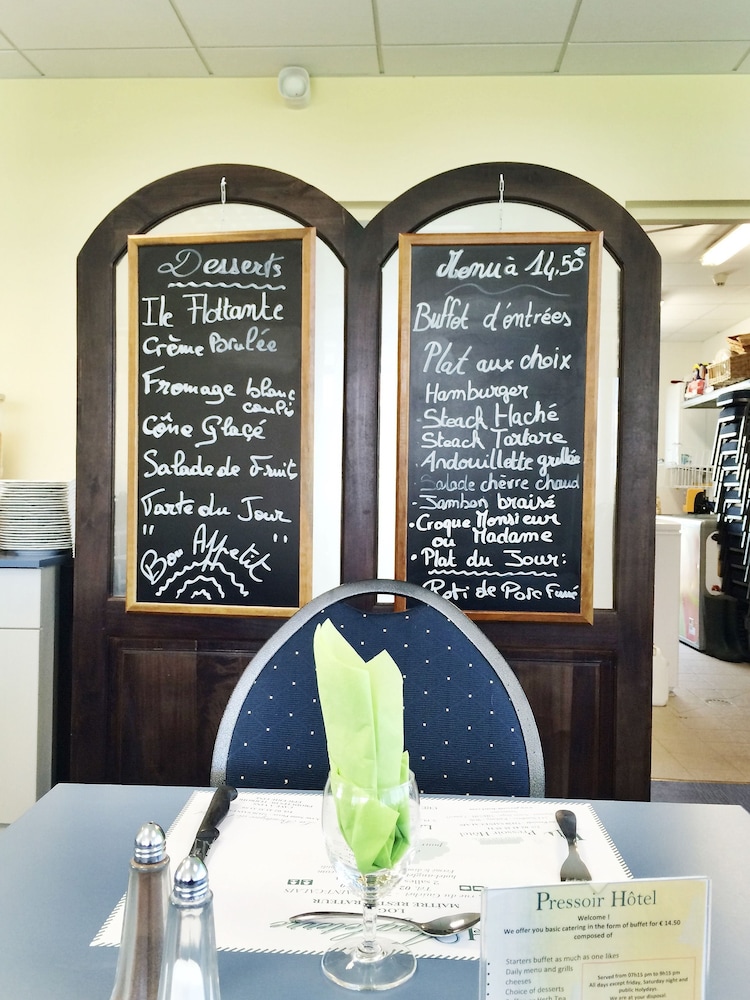 Desserts
Ile Flottante
Crème Brulée
Fromage blanc
confi
Cône Glaçé
Salade de Fruit
Tarte du Jour
" Bon Appetit "
Menu à 14,50€
Buffet d'éntrées
Plat aux choix
Hamburger
Steack Haché
Steack Tartare
Andouillette grillée
Salade chèvre chaud
Jambon braisé
Croque Monsieur
ou Madame
Plat du Jour:
Roti de Porc Fumé
Pressoir Hôtel
MAÎTRE RESTAURATEUR
Pressoir Hôtel
Welcome !
We offer you basic catering in the form of buffet for € 14.50
composed of
Starters buffet as much as one likes
Daily menu and grills
cheeses
Choice of desserts
Served from 07h15 pm to 9h15 pm
All days except friday, Saturday night and
public Holydays.
We are at your disposal